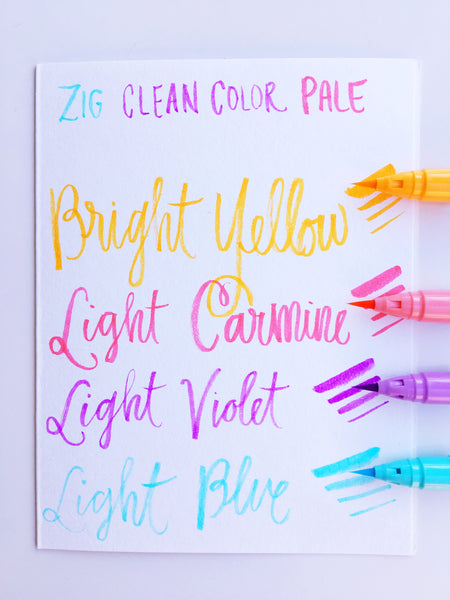 ZIG CLEAN COLOR PALE
Bright Yellow
Light Carmine
Light Violet
Light Blue